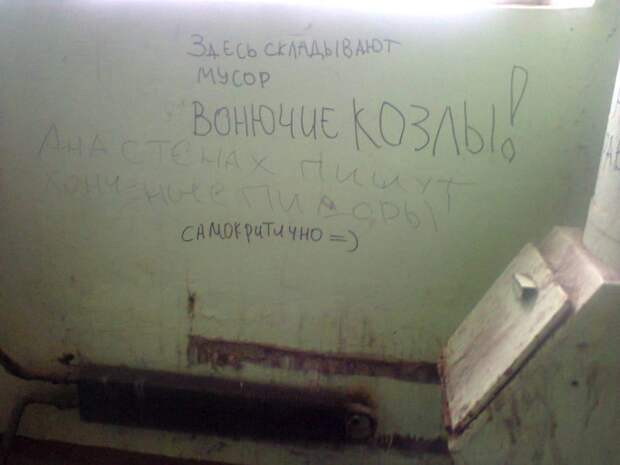 ЗДЕСЬ СКЛАДЫВАЮТ
МУСОР
ВОНЮЧИЕ КОЗЛЫ!
А НА СТЕНАХ ПИШУТ
КОНЧЕННЫЕ ПИДОРЫ!
САМОКРИТИЧНО =)